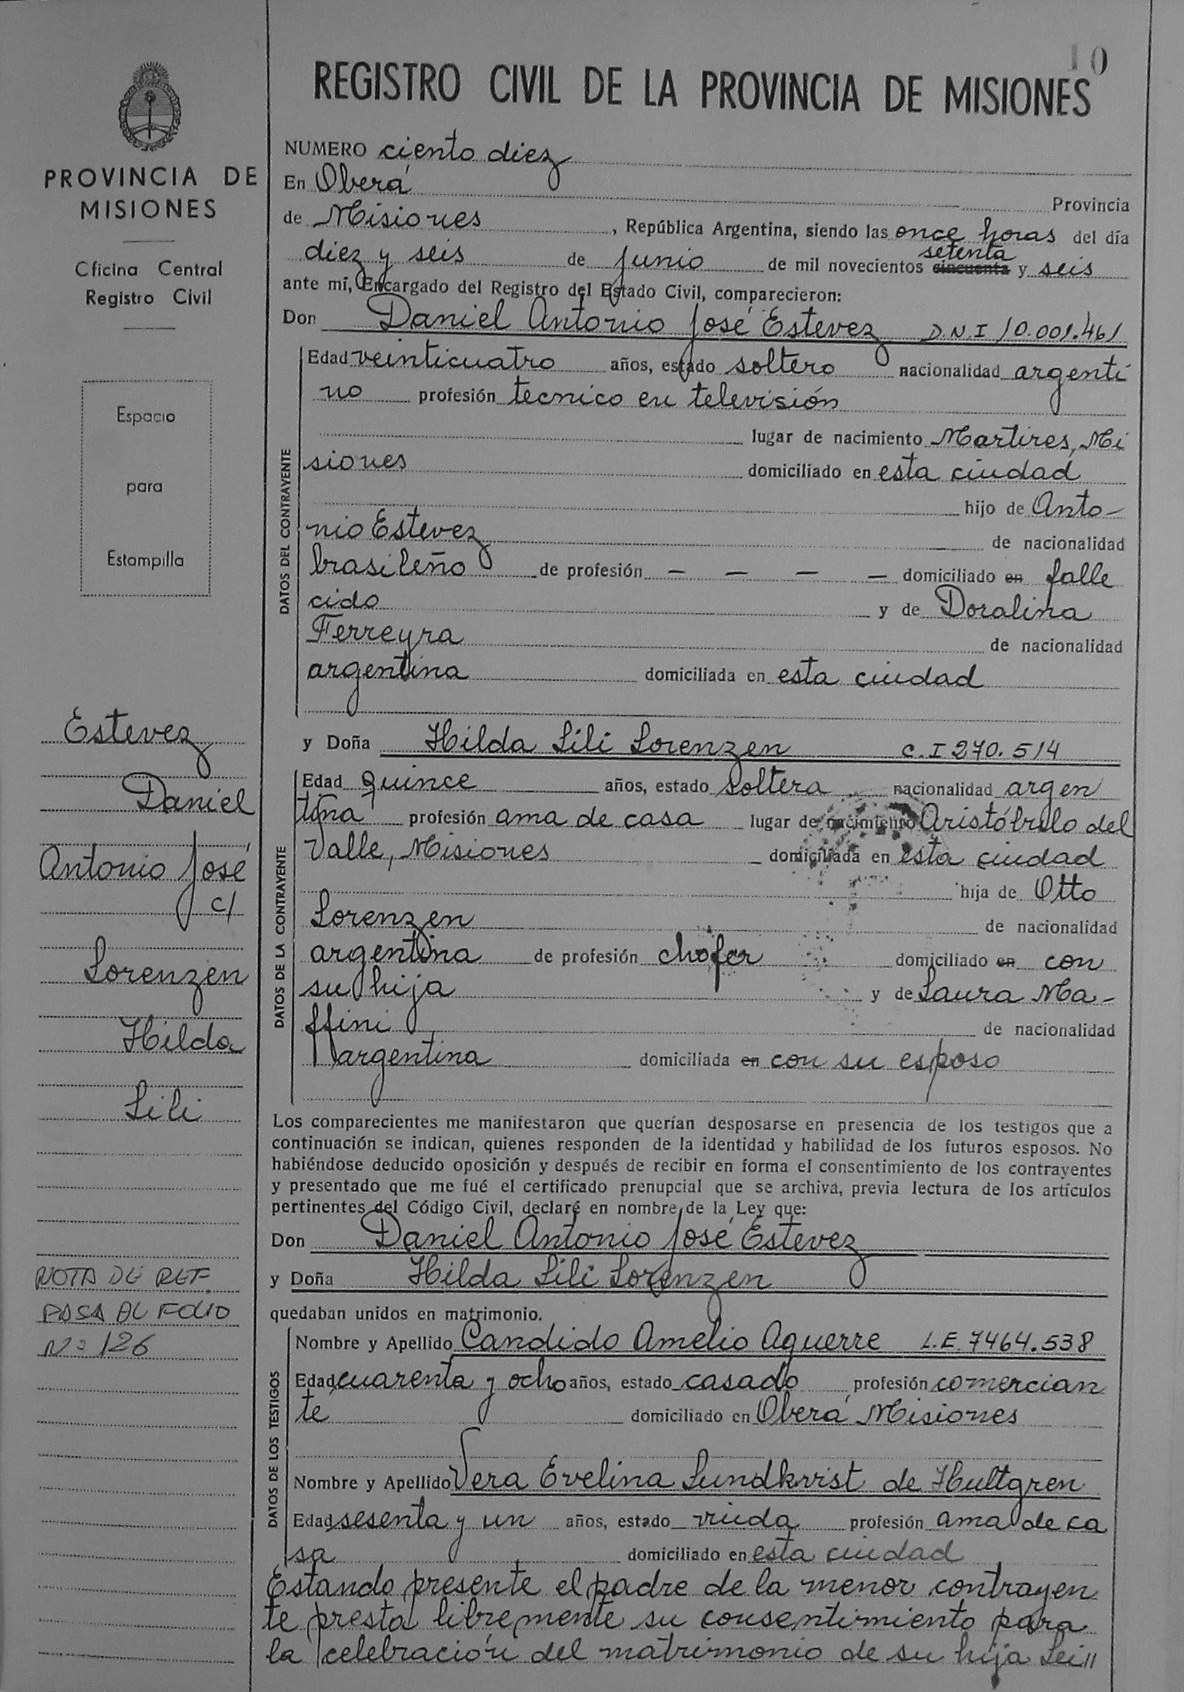 10
REGISTRO CIVIL DE LA PROVINCIA DE MISIONES
PROVINCIA DE
MISIONES
Oficina Central
Registro Civil
Espacio
para
Estampilla
Estevez
Daniel
Antonio José
c/
Lorenzen
Hilda
Lili
NOTA DE REF.
PASA AL FOLIO
Nº 126
NUMERO ciento diez
En Oberá Provincia
de Misiones, República Argentina, siendo las once horas del día
diez y seis de junio de mil novecientos cincuenta setenta y seis
ante mí, Encargado del Registro del Estado Civil, comparecieron:
Don Daniel Antonio José Estevez D.N.I 10.001.461
DATOS DEL CONTRAYENTE
Edad veinticuatro años, estado soltero nacionalidad argenti
no profesión tecnico en televisión
lugar de nacimiento Martires, Mi
siones domiciliado en esta ciudad
hijo de Anto-
nio Estevez de nacionalidad
brasileño de profesión — — — — domiciliado en falle
cido y de Doralina
Ferreyra de nacionalidad
argentina domiciliada en esta ciudad
y Doña Hilda Lili Lorenzen C.I 270.514
DATOS DE LA CONTRAYENTE
Edad quince años, estado soltera nacionalidad argen
tina profesión ama de casa lugar de nacimiento Aristóbulo del
Valle, Misiones domiciliada en esta ciudad
hija de Otto
Lorenzen de nacionalidad
argentina de profesión chofer domiciliado en con
su hija y de Laura Ma-
ffini de nacionalidad
argentina domiciliada en con su esposo
Los comparecientes me manifestaron que querían desposarse en presencia de los testigos que a
continuación se indican, quienes responden de la identidad y habilidad de los futuros esposos. No
habiéndose deducido oposición y después de recibir en forma el consentimiento de los contrayentes
y presentado que me fué el certificado prenupcial que se archiva, previa lectura de los artículos
pertinentes del Código Civil, declaré en nombre de la Ley que:
Don Daniel Antonio José Estevez
y Doña Hilda Lili Lorenzen
quedaban unidos en matrimonio.
DATOS DE LOS TESTIGOS
Nombre y Apellido Candido Amelio Aguerre L.E. 7464.538
Edad cuarenta y ocho años, estado casado profesión comercian
te domiciliado en Oberá Misiones
Nombre y Apellido Vera Evelina Lundkvist de Hultgren
Edad sesenta y un años, estado viuda profesión ama de ca
sa domiciliado en esta ciudad
Estando presente el padre de la menor contrayen
te presta libremente su consentimiento para
la celebración del matrimonio de su hija Lei//